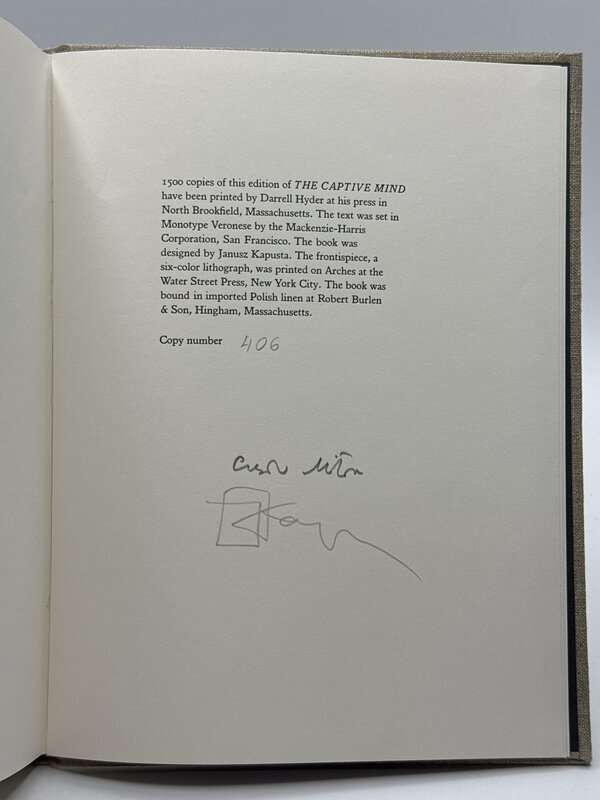 1500 copies of this edition of THE CAPTIVE MIND
have been printed by Darrell Hyder at his press in
North Brookfield, Massachusetts. The text was set in
Monotype Veronese by the Mackenzie-Harris
Corporation, San Francisco. The book was
designed by Janusz Kapusta. The frontispiece, a
six-color lithograph, was printed on Arches at the
Water Street Press, New York City. The book was
bound in imported Polish linen at Robert Burlen
& Son, Hingham, Massachusetts.
Copy number 406